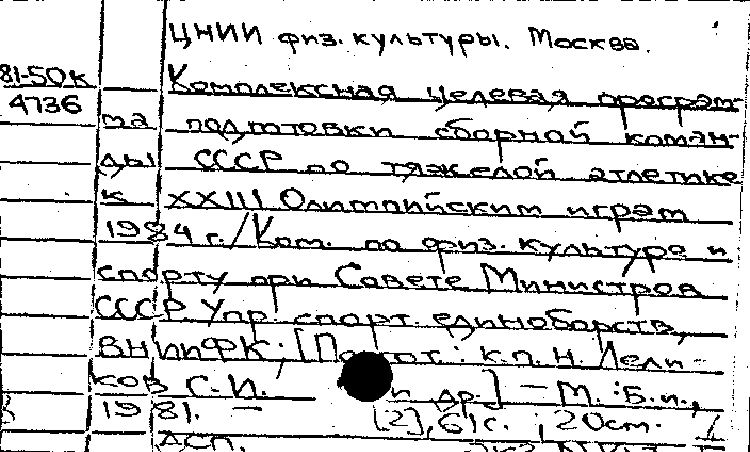 ЦНИИ физ. культуры. Москва.
81-50к Комплексная целевая програм-
4736 ма подготовки сборной коман-
ды СССР по тяжелой атлетике
к XXIII Олимпийским играм
1984 г. / Ком. по физ. культуре и
спорту при Совете Министров
СССР, Упр. спорт. единоборств,
ВНИИФК; [Подгот.: к.п.н. Лели-
ков С.И. и др.] — М. : Б.и.,
1981. — [2], 61 с. ; 20 см.
ДСП.